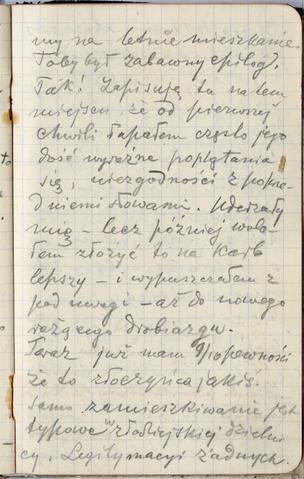 my na letnie mieszkanie.
Toby był zabawny epilog.
Tak! Zapisuję tu na tem
miejscu że od pierwszej
chwili łapałem często jego
dość wyraźne poplątania
się, niezgodności z poprze-
dniemi słowami. Uderzały
mię – lecz później wola-
łem złożyć to na karb
lepszy – i wypuszczałem z
pod uwagi – aż do nowego
rażącego drobiazgu.
Teraz już mam 9/10 pewności
że to złoczyńca jakiś.
Samo zamieszkiwanie jest
typowe w złodziejskiej dzielni
cy. Legitymacyi żadnych.
to